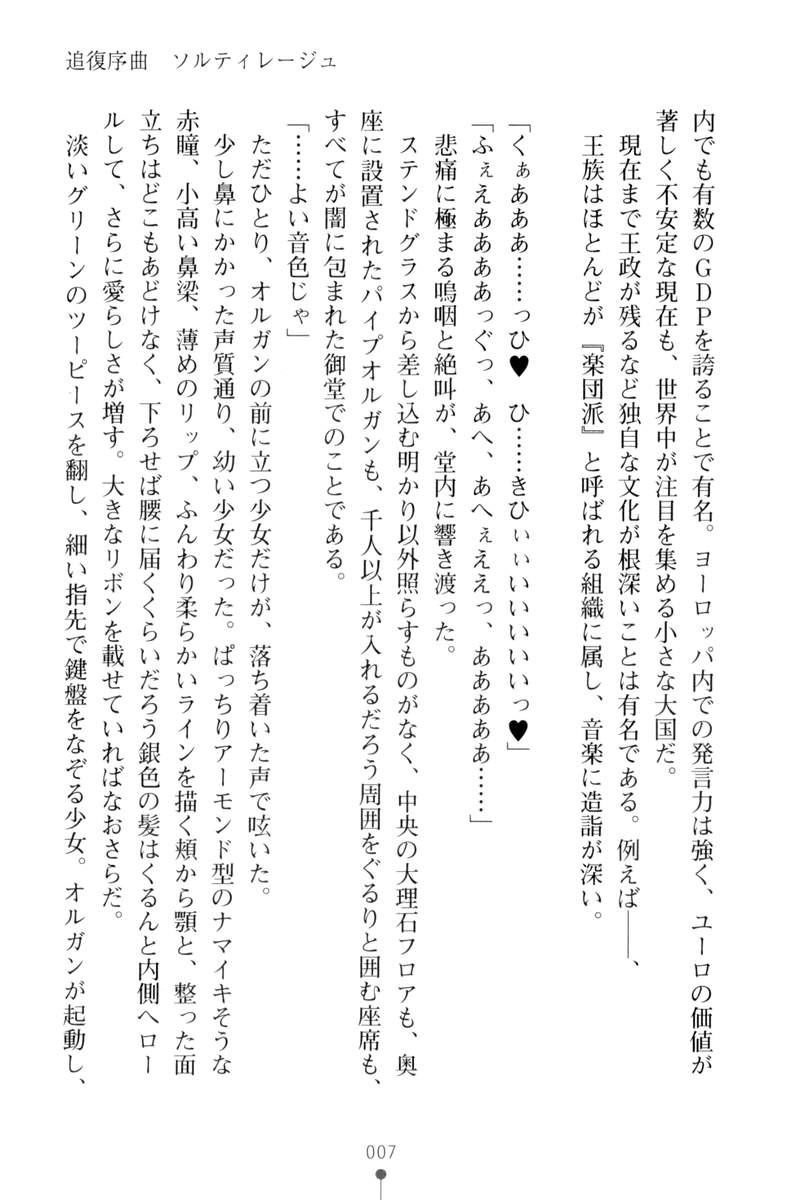 追復序曲　ソルティレージュ
内でも有数のGDPを誇ることで有名。ヨーロッパ内での発言力は強く、ユーロの価値が
著しく不安定な現在も、世界中が注目を集める小さな大国だ。
現在まで王政が残るなど独自な文化が根深いことは有名である。例えば――、
王族はほとんどが『楽団派』と呼ばれる組織に属し、音楽に造詣が深い。
「くぁあああ……っひ♥　ひ……きひぃぃいいいいいっ♥」
「ふぇえああああっぐっ、あへ、あへぇええっ、あああああ……」
悲痛に極まる嗚咽と絶叫が、堂内に響き渡った。
ステンドグラスから差し込む明かり以外照らすものがなく、中央の大理石フロアも、奥
座に設置されたパイプオルガンも、千人以上が入れるだろう周囲をぐるりと囲む座席も、
すべてが闇に包まれた御堂でのことである。
「……よい音色じゃ」
ただひとり、オルガンの前に立つ少女だけが、落ち着いた声で呟いた。
少し鼻にかかった声質通り、幼い少女だった。ぱっちりアーモンド型のナマイキそうな
赤瞳、小高い鼻梁、薄めのリップ、ふんわり柔らかいラインを描く頬から顎と、整った面
立ちはどこもあどけなく、下ろせば腰に届くくらいだろう銀色の髪はくるんと内側へロー
ルして、さらに愛らしさが増す。大きなリボンを載せていればなおさらだ。
淡いグリーンのツーピースを翻し、細い指先で鍵盤をなぞる少女。オルガンが起動し、
007